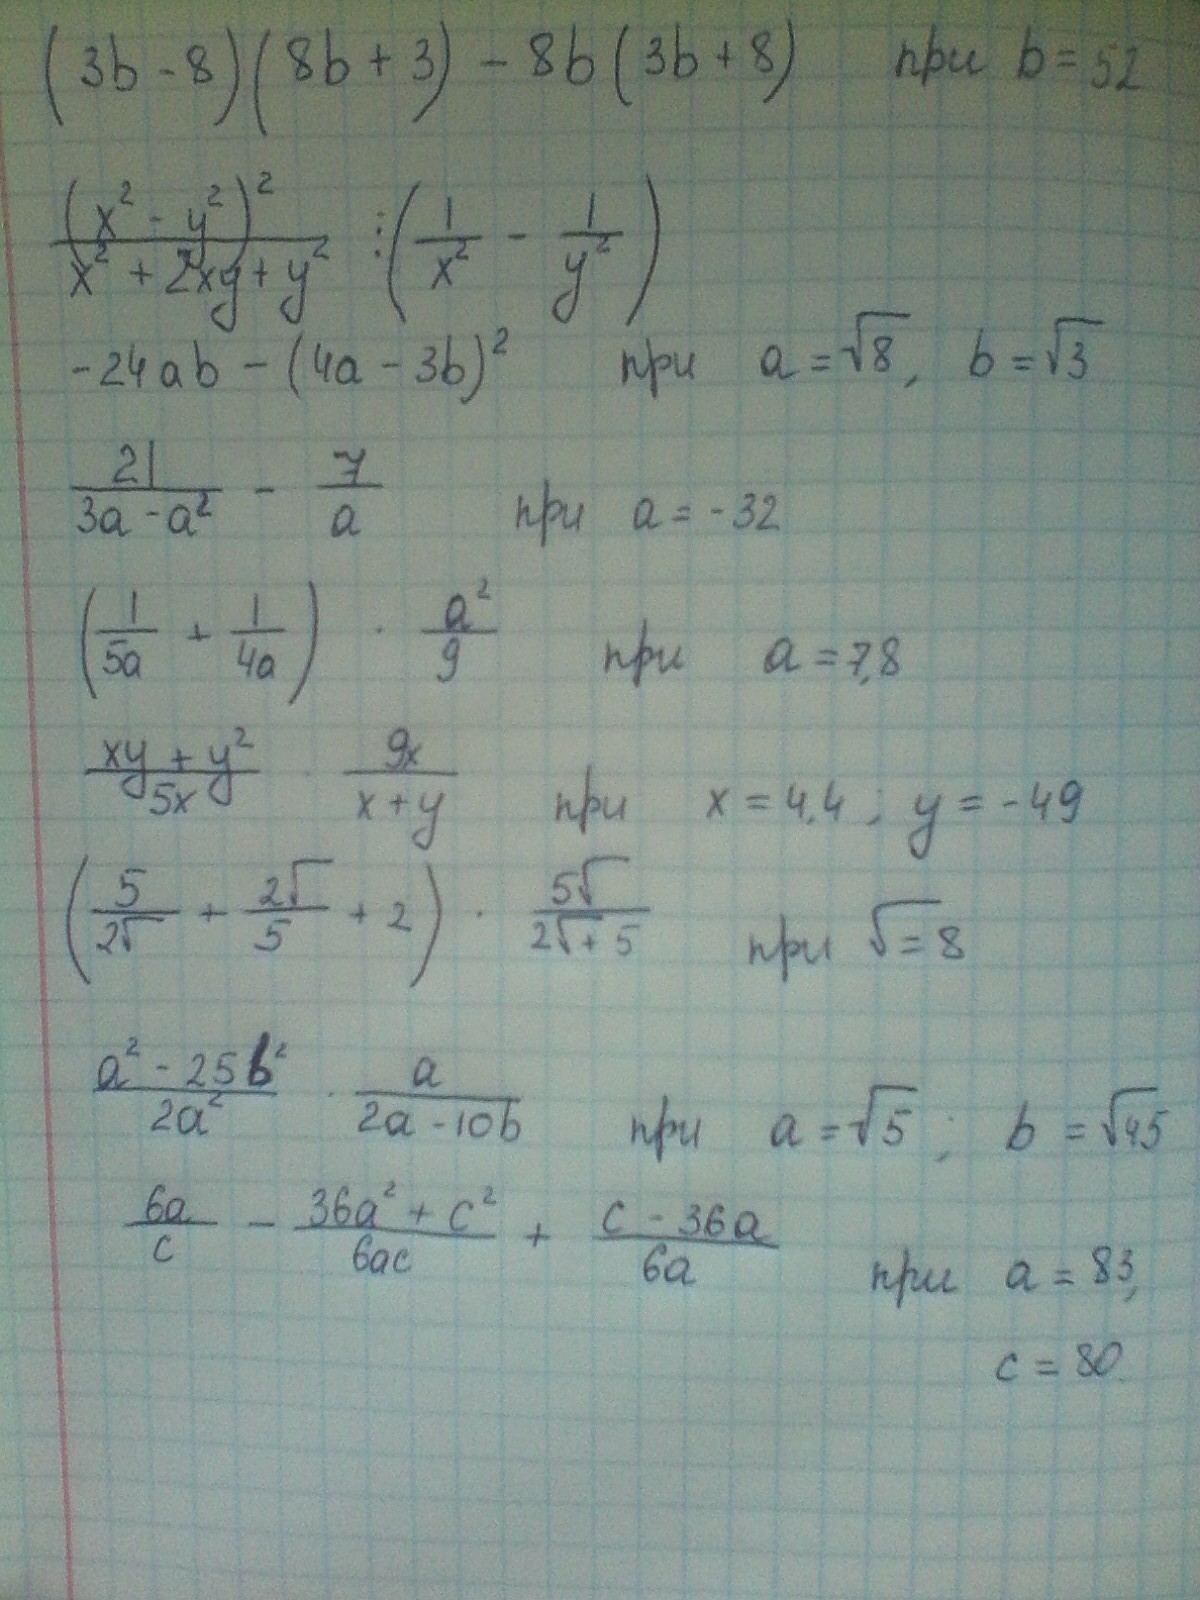 (3b - 8)(8b + 3) - 8b(3b + 8) при b = 52
(x² - y²)² / x² + 2xy + y² : (1/x² - 1/y²)
-24ab - (4a - 3b)² при a = √8, b = √3
21 / 3a - a² - 7/a при a = -32
(1/5a + 1/4a) · a²/9 при a = 7,8
xy + y² / 5x · 9x / x + y при x = 4,4 ; y = -49
(5/2√ + 2√/5 + 2) · 5√ / 2√ + 5 при √ = 8
a² - 25b² / 2a² · a / 2a - 10b при a = √5 ; b = √45
6a/c - 36a² + c² / 6ac + c - 36a / 6a при a = 83,
c = 80